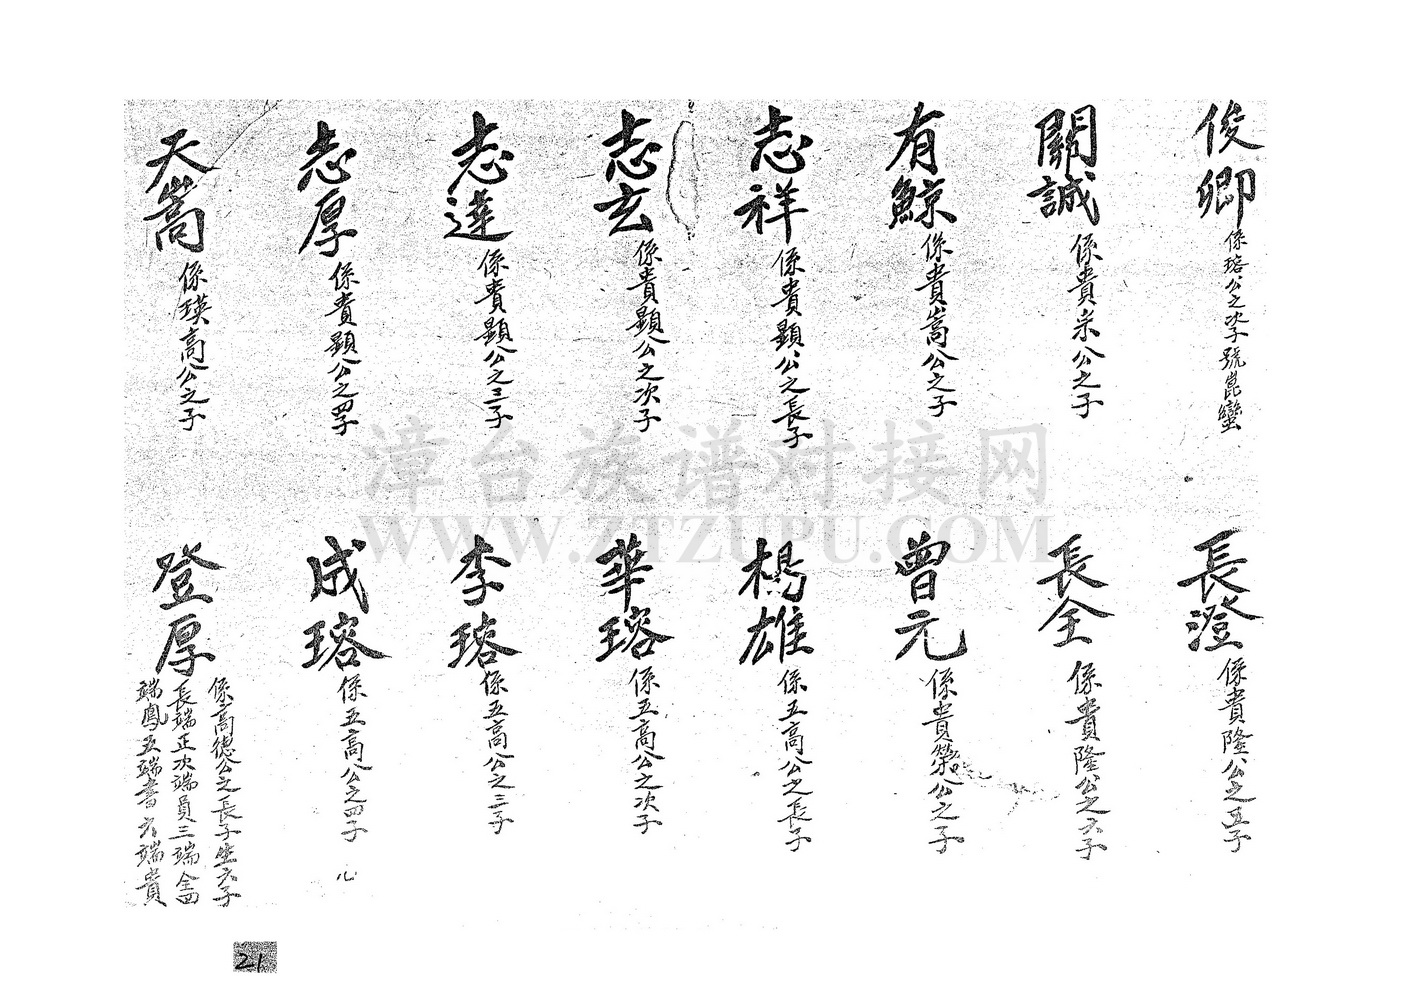 俊卿
係瑢公之次子號崑巒
關誠
係貴宗公之子
有鯨
係貴嵩公之子
志祥
係貴顯公之長子
志玄
係貴顯公之次子
志達
係貴顯公之三子
志厚
係貴顯公之四子
天嵩
係瑛高公之子
長澄
係貴隆公之五子
長全
係貴隆公之六子
曾元
係貴榮公之子
楊雄
係五高公之長子
華瑢
係五高公之次子
李瑢
係五高公之三子
成瑢
係五高公之四子
登厚
係高德公之長子生六子
長端正次端員三端全四
端鳳五端書六端貴
漳台族谱对接网
WWW.ZTZUPU.COM
21